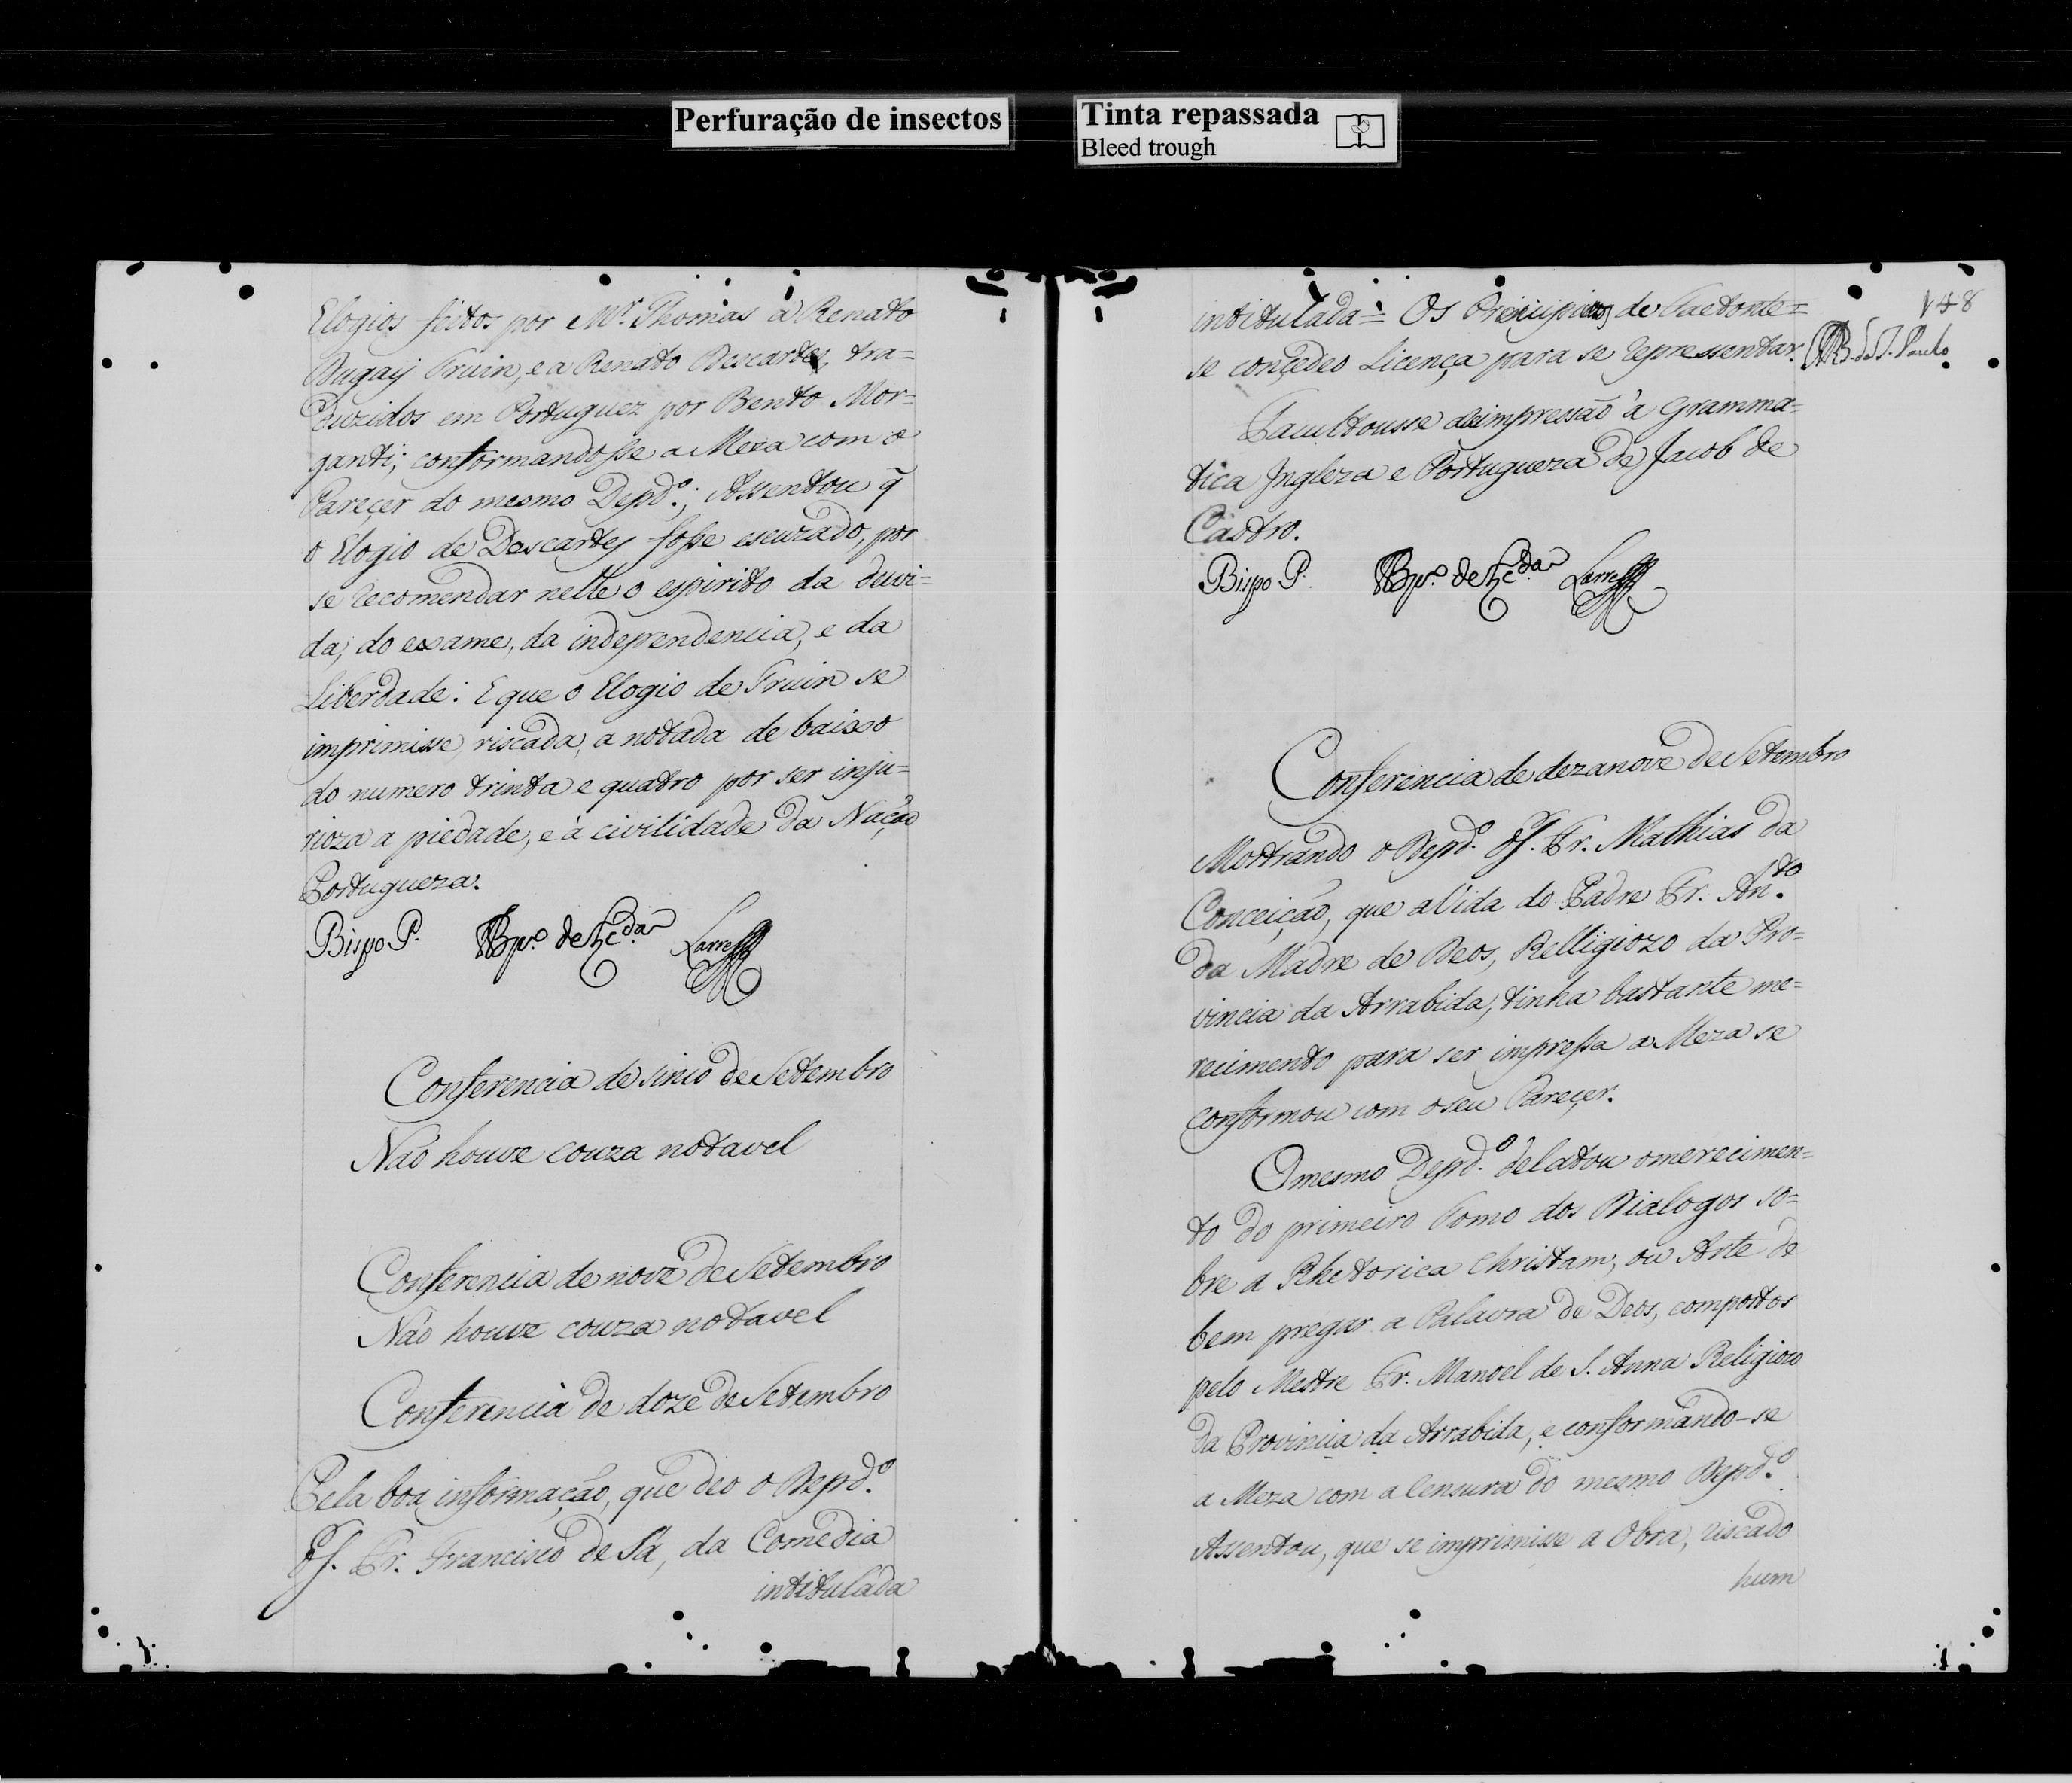 Perfuração de insectos
Tinta repassada
Bleed trough
Elogios feitos por Mr. Thomas a Renato
Dugaÿ Truin, e a Renato Descartes, tra=
duzidos em Portuguez por Bento Mor=
ganti; conformandosse a Meza com o
Pareçer do mesmo Depdo.; Assentou q̃
o Elogio de Descartes fosse escuzado, por
se recomendar nelle o espirito da duvi=
da, do exame, da independencia, e da
Liberdade: E que o Elogio de Truin se
imprimisse, riscada, a notada de baixo
do numero trinta e quatro por ser inju=
rioza a piedade, e à civilidade da Nação
Portugueza.
Bispo P.
Conferencia de sinco de Setembro
Não houve couza notavel
Conferencia de nove de Setembro
Não houve couza notavel
Conferencia de doze de Setembro
Pela boa informação, que deo o Depdo.
Fr. Francisco de Sá, da Comedia
intitulada
148
intitulada = Os Precipicios de Faetonte =
se conçedeo Licença para se representar.
de S. Paulo.
Facultousse a impressão à Gramma=
tica Ingleza e Portugueza de Jacob de
Castro.
Bispo P.
Conferencia de dezanove de Setembro
Mostrando o Depdo. Fr. Mathias da
Conceição, que a Vida do Padre Fr. Anto.
da Madre de Deos, Relligiozo da Pro=
vincia da Arrabida, tinha bastante me=
recimento para ser impressa a Meza se
conformou com o seu Pareçer.
O mesmo Depdo. relatou o merecimen=
to do primeiro Tomo dos Dialogos so=
bre a Rhetorica Christam, ou Arte de
bem pregar a Palavra de Deos, compostos
pelo Mestre Fr. Manoel de S. Anna Religiozo
da Provincia da Arrabida, e conformando-se
a Meza com a Censura do mesmo Depdo.
Assentou, que se imprimisse a Obra, riscado
hum